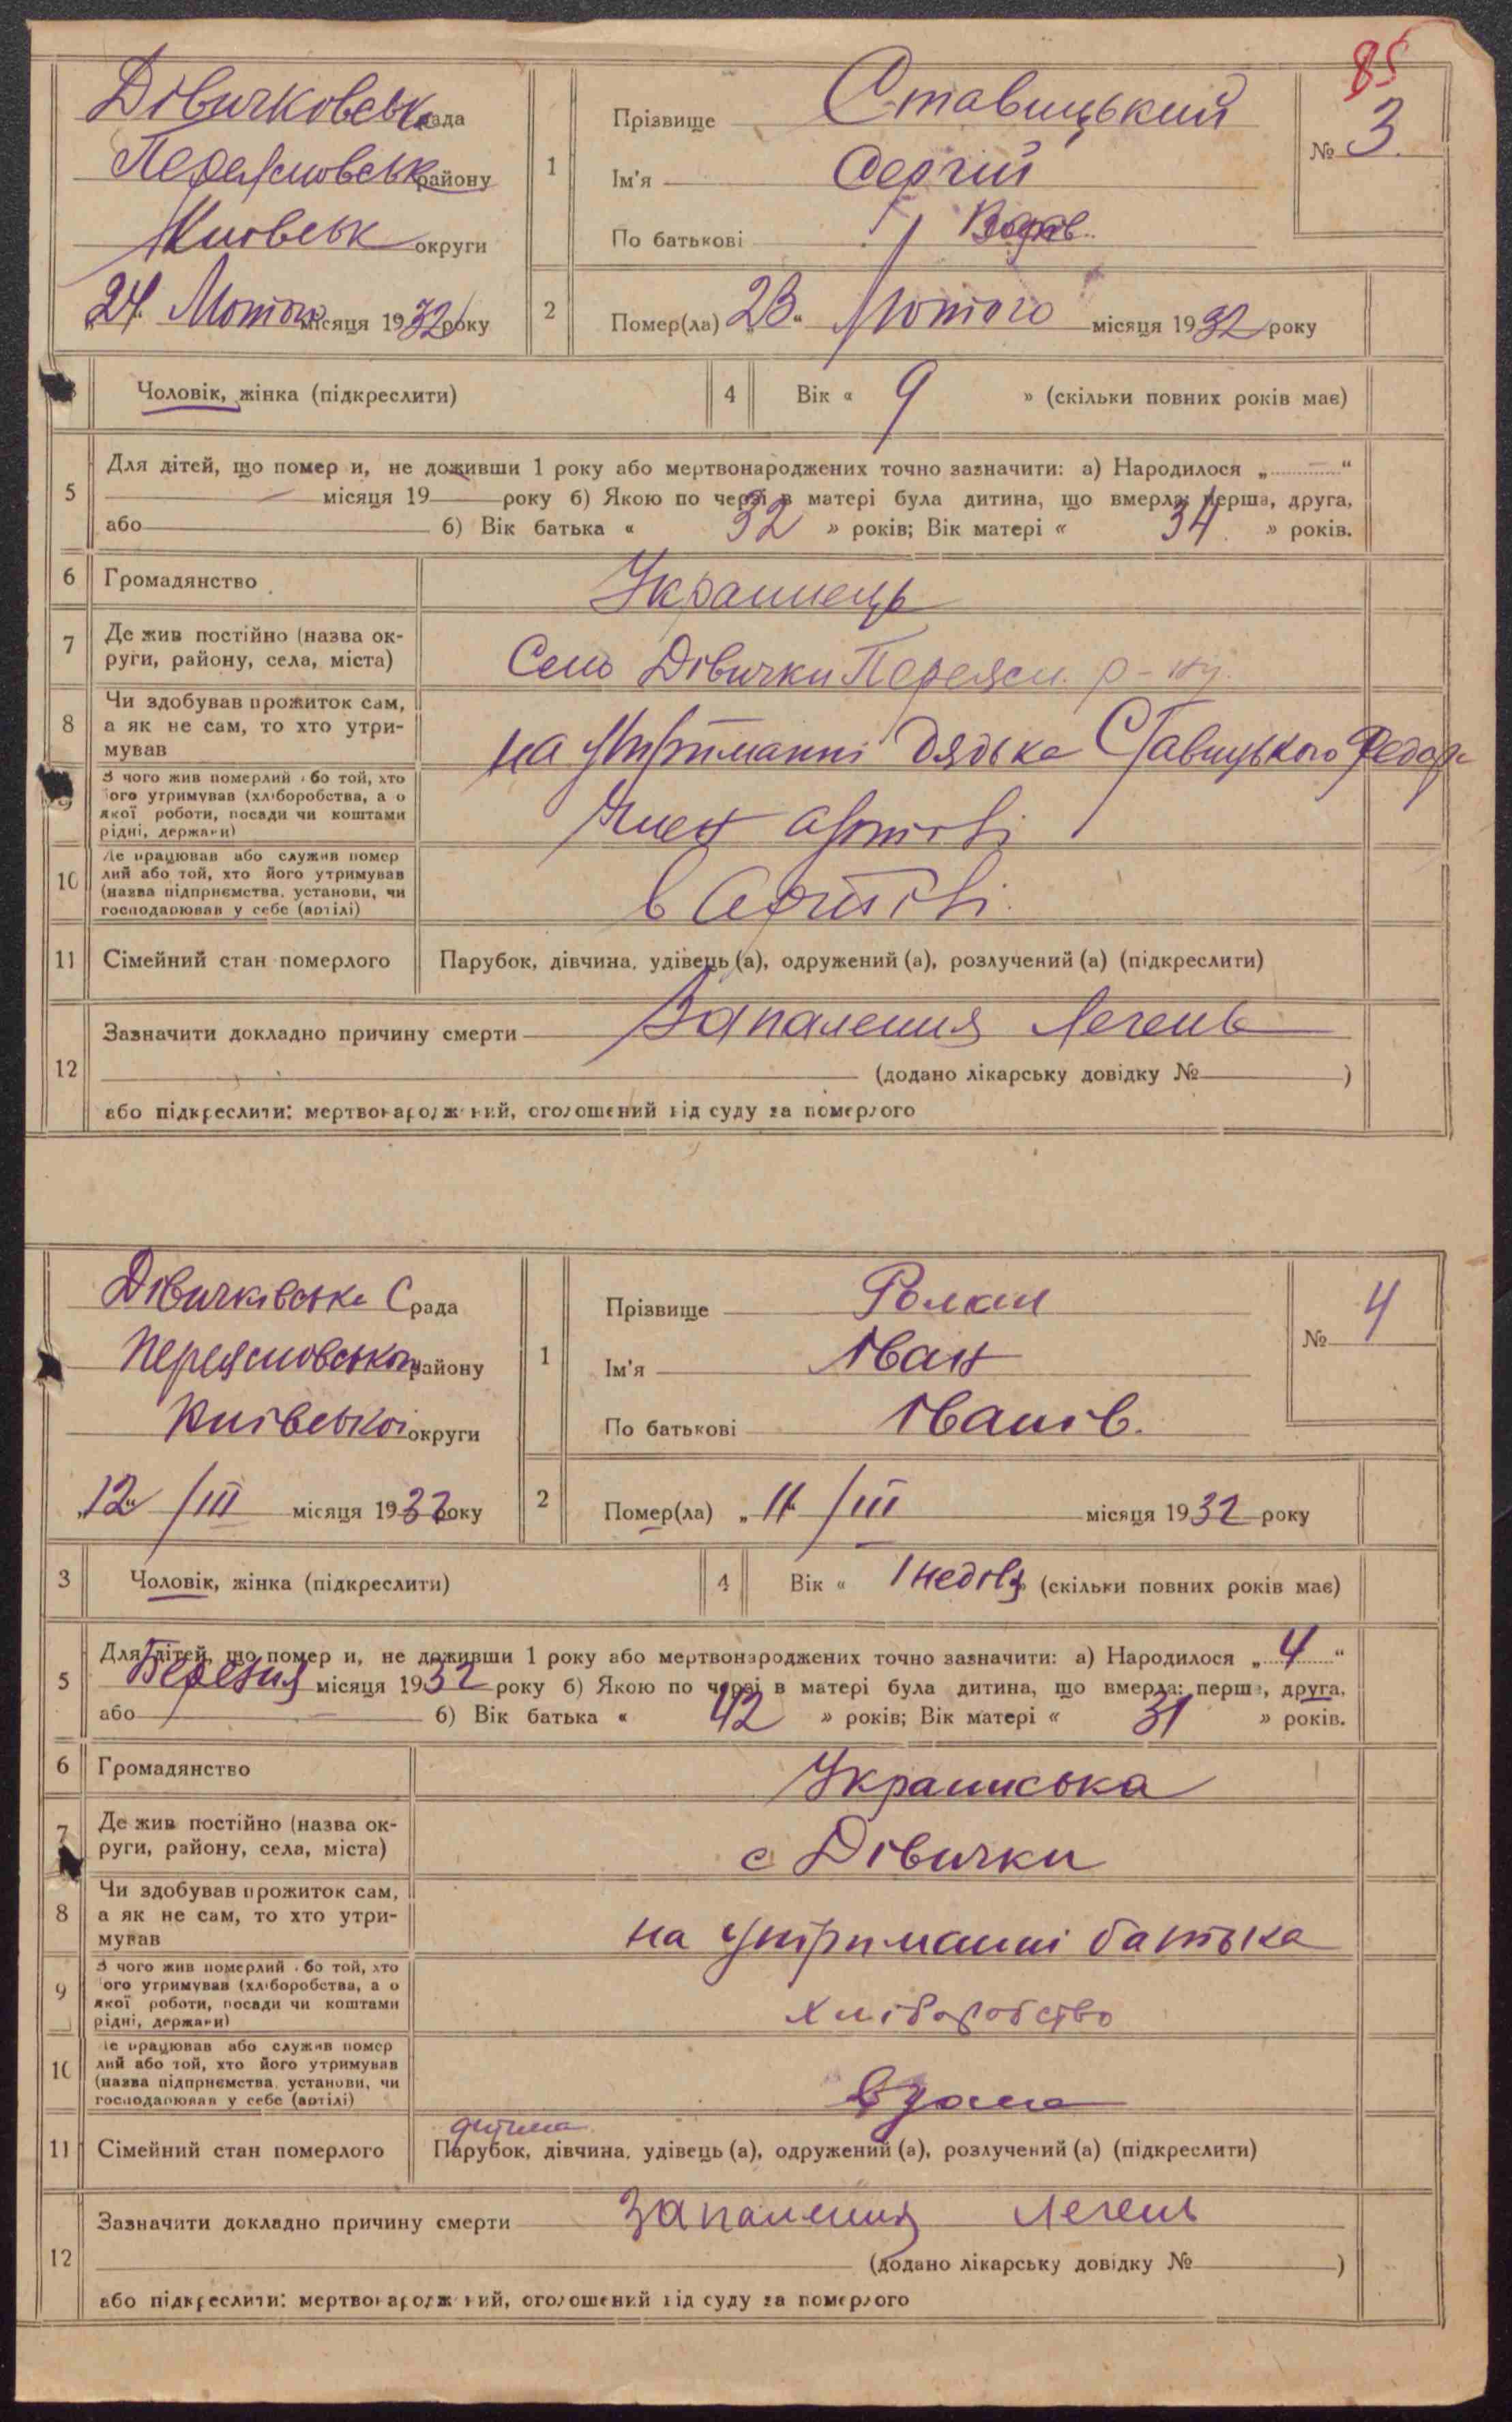 85
Дівичковськ рада
Переясловськ району
Київськ округи
24 Лютого місяця 1932 року
1
Прізвище Ставицький
Ім'я Сергій
По батькові
№ 3
2
Помер(ла) „23“ Лютого місяця 1932 року
Чоловік, жінка (підкреслити)
4
Вік « 9 » (скільки повних років має)
5
Для дітей, що помер и, не доживши 1 року або мертвонароджених точно зазначити: а) Народилося „ — “
— місяця 19 року б) Якою по черзі в матері була дитина, що вмерла: перша, друга,
або 6) Вік батька « 32 » років; Вік матері « 34 » років.
6 Громадянство Украинець
7 Де жив постійно (назва ок-
руги, району, села, міста)
Село Дівички Переясл. р-ну.
8 Чи здобував прожиток сам,
а як не сам, то хто утри-
мував
на утриманні дядька Ставицького Федор
З чого жив померлий або той, хто
його утримував (хліборобства, а о
якої роботи, посади чи коштами
рідні, держави)
Член артілі
10 Де працював або служив помер
лий або той, хто його утримував
(назва підприємства, установи, чи
господарював у себе (артілі)
в Артілі.
11 Сімейний стан померлого Парубок, дівчина, удівець (а), одружений (а), розлучений (а) (підкреслити)
12
Зазначити докладно причину смерти Запалення легень
(додано лікарську довідку № )
або підкреслити: мертвонароджений, оголошений від суду за померлого
Дівичківська С рада
Переясловського району
Київської округи
„12“ /III місяця 1932 року
1
Прізвище
Ім'я Іван
По батькові Іванів.
№ 4
2
Помер(ла) „11“ /III місяця 1932 року
3
Чоловік, жінка (підкреслити)
4
Вік « 1 неділя » (скільки повних років має)
5
Для дітей, що помер и, не доживши 1 року або мертвонароджених точно зазначити: а) Народилося „ 4 “
Березня місяця 1932 року б) Якою по черзі в матері була дитина, що вмерла: перша, друга,
або 6) Вік батька « 42 » років; Вік матері « 31 » років.
6 Громадянство Украинська
7 Де жив постійно (назва ок-
руги, району, села, міста)
с Дівички
8 Чи здобував прожиток сам,
а як не сам, то хто утри-
мував
на утриманні батька
9 З чого жив померлий або той, хто
його утримував (хліборобства, а о
якої роботи, посади чи коштами
рідні, держави)
хліборобство
10 Де працював або служив помер
лий або той, хто його утримував
(назва підприємства, установи, чи
господарював у себе (артілі)
вдома
дитина
11 Сімейний стан померлого Парубок, дівчина, удівець (а), одружений (а), розлучений (а) (підкреслити)
12
Зазначити докладно причину смерти Запалення легень
(додано лікарську довідку № )
або підкреслити: мертвонароджений, оголошений від суду за померлого